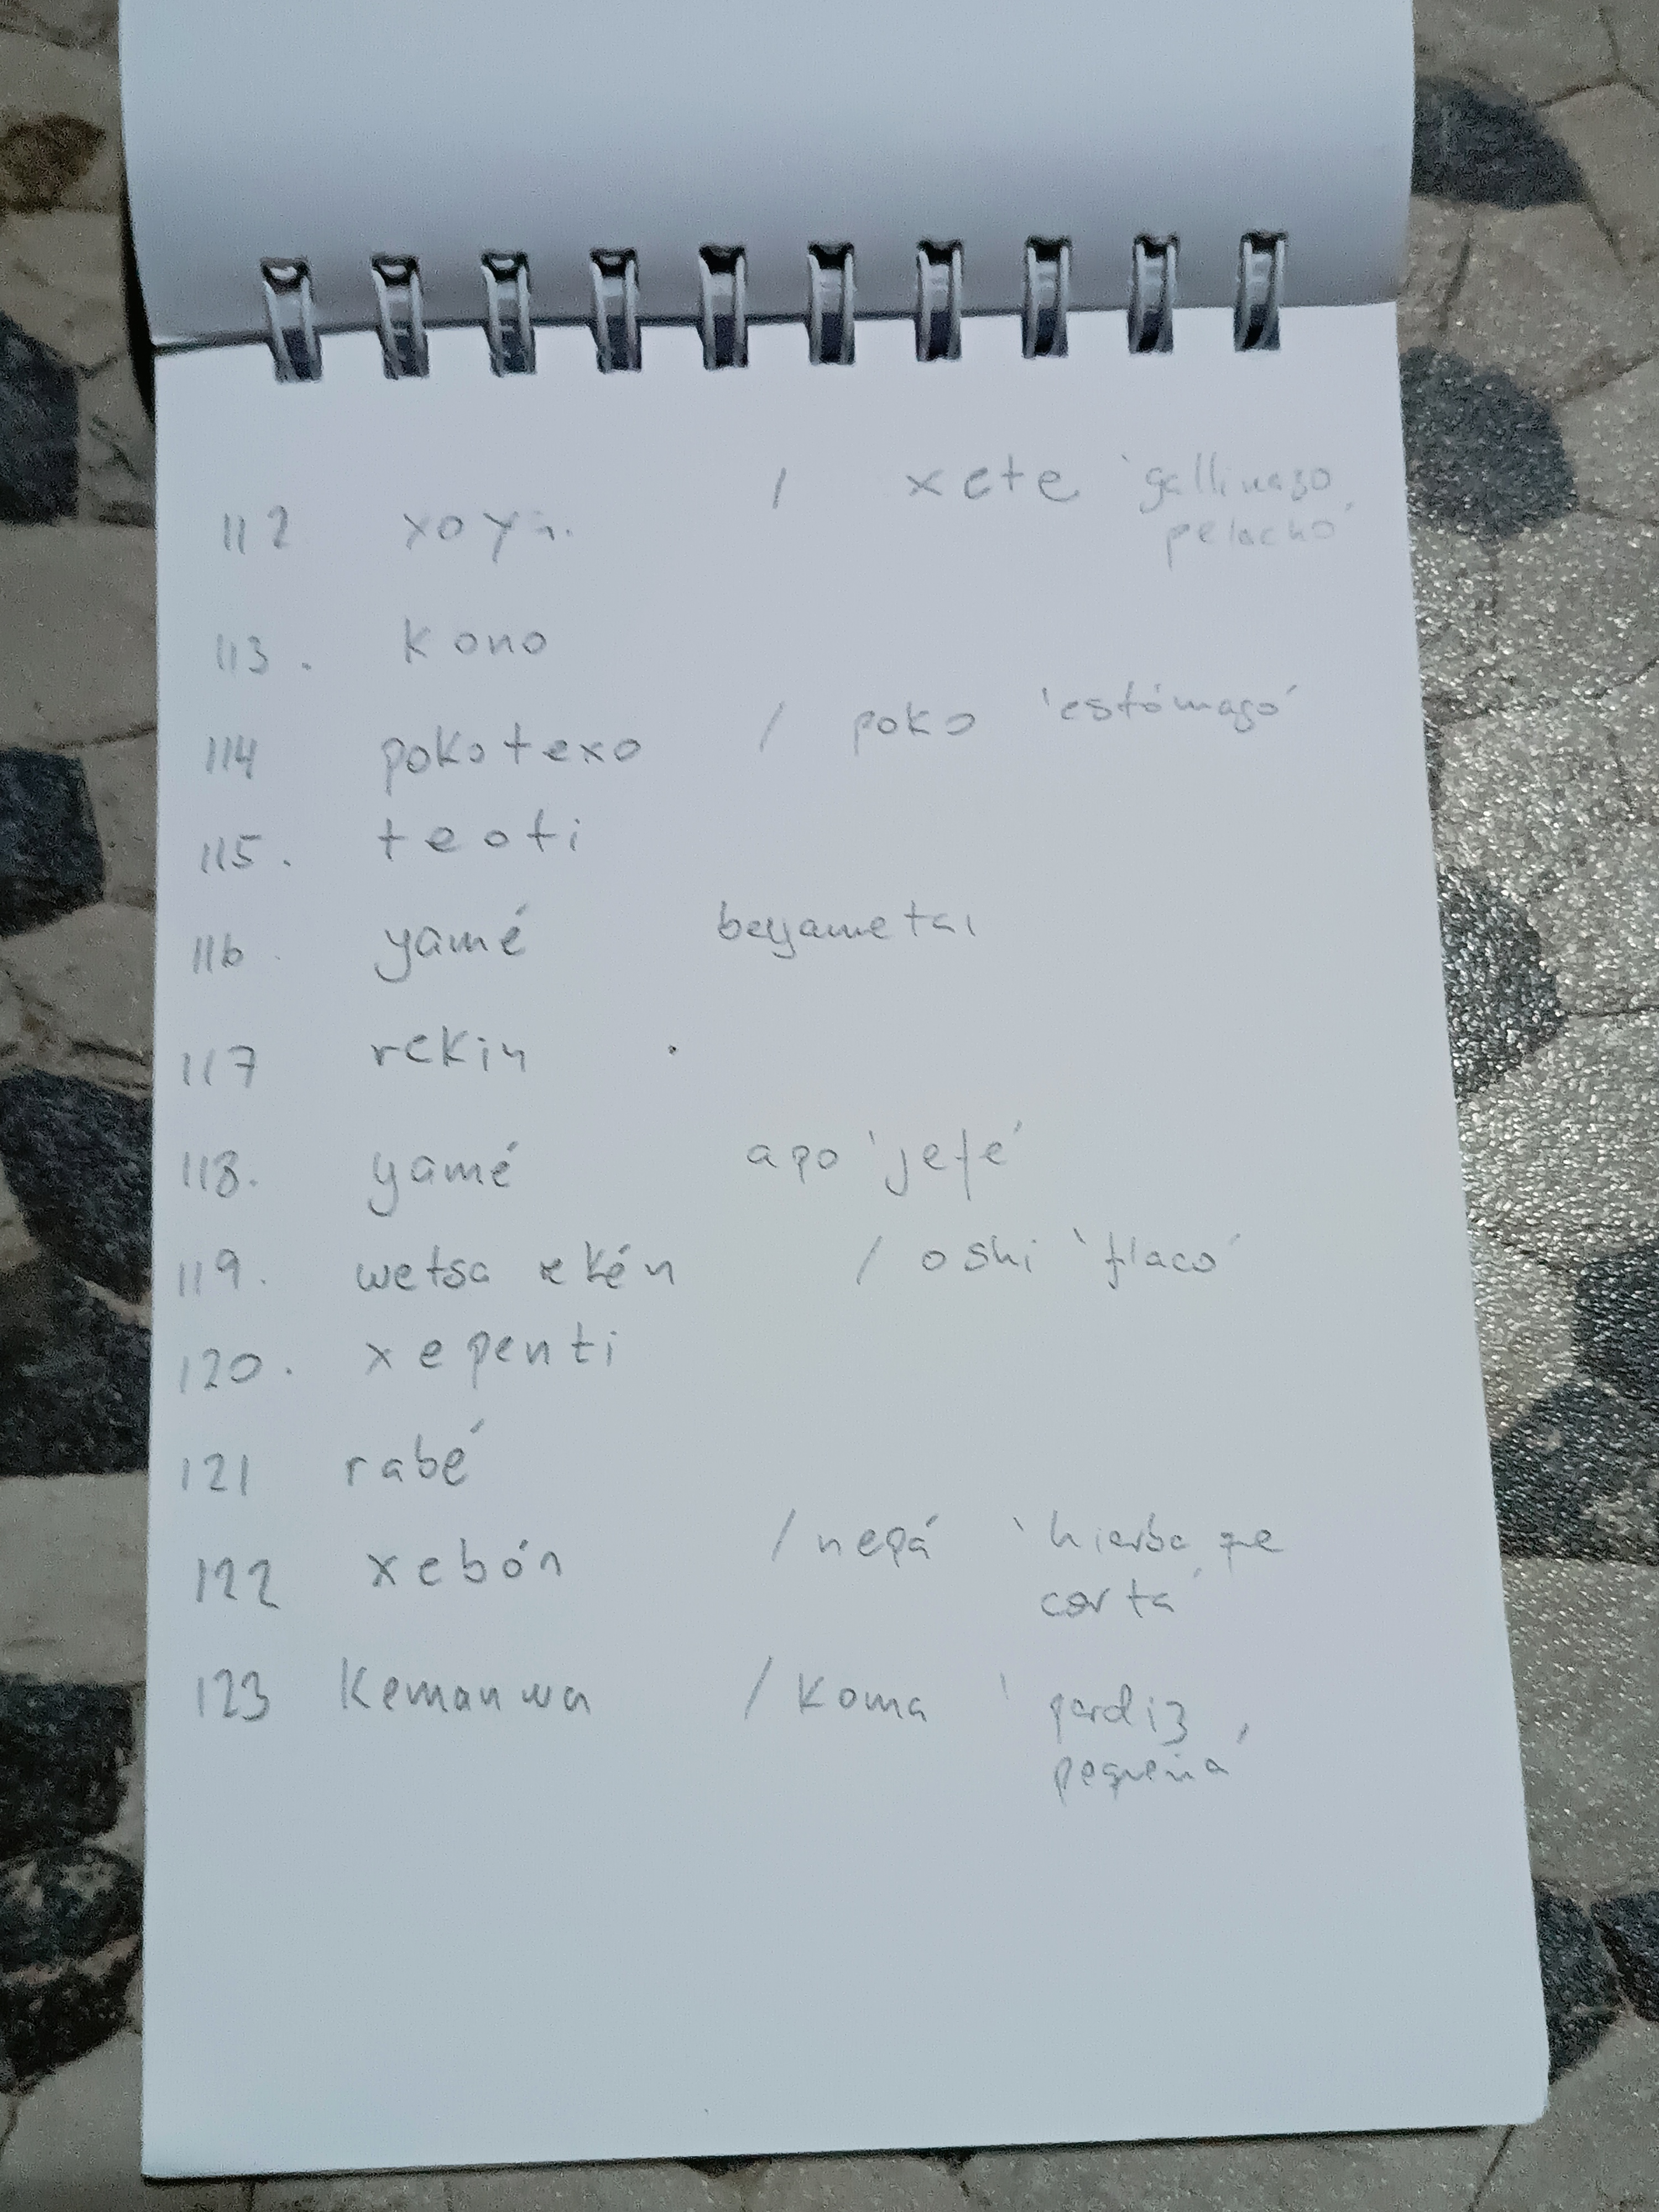 112 xoya. / xete 'gallinazo
pelacho'
113. kono
114 pokotexo / poko 'estómago'
115. teoti
116. yamé beyametai
117 rekin
118. yamé apo 'jefe'
119. wetsa rekén / oshi 'flaco'
120. xepenti
121 rabé
122 xebón / nepá 'hierba que
corta'
123 kemanwa / koma 'perdiz
pequeña'